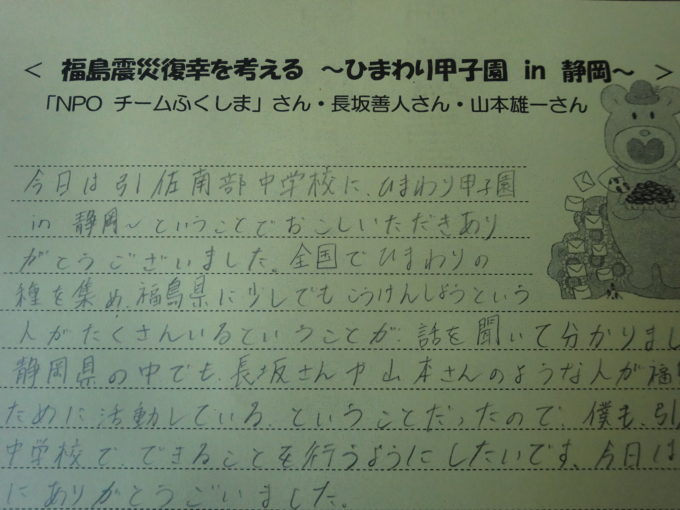 < 福島震災復幸を考える ～ひまわり甲子園 in 静岡～ >
「NPO チームふくしま」さん・長坂善人さん・山本雄一さん
今日は引佐南部中学校に、ひまわり甲子園
in 静岡～ということでおこしいただきあり
がとうございました。全国でひまわりの
種を集め、福島県に少しでもこうけんしようという
人がたくさんいるということが、話を聞いて分かりまし
静岡県の中でも、長坂さんや山本さんのような人が福
ために活動している、ということだったので、僕も、引
中学校で、できることを行うようにしたいです。今日は
にありがとうございました。